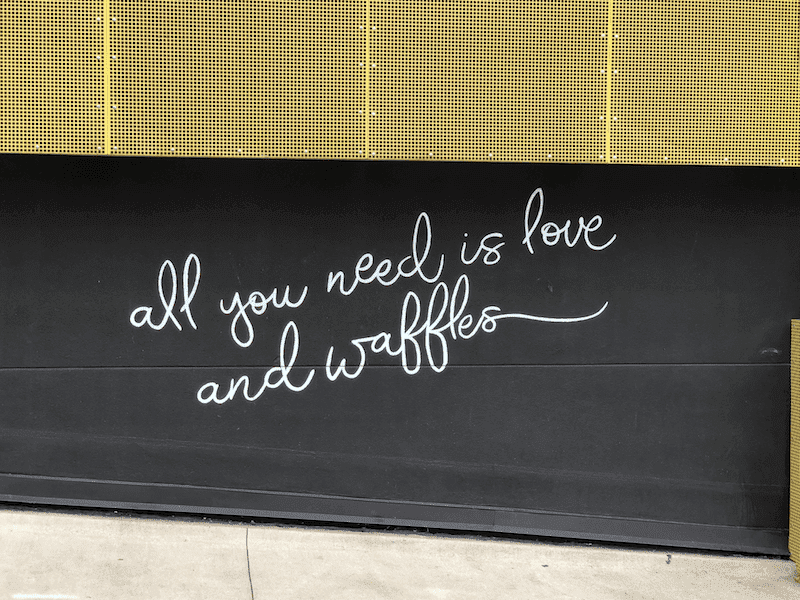 all you need is love
and waffles